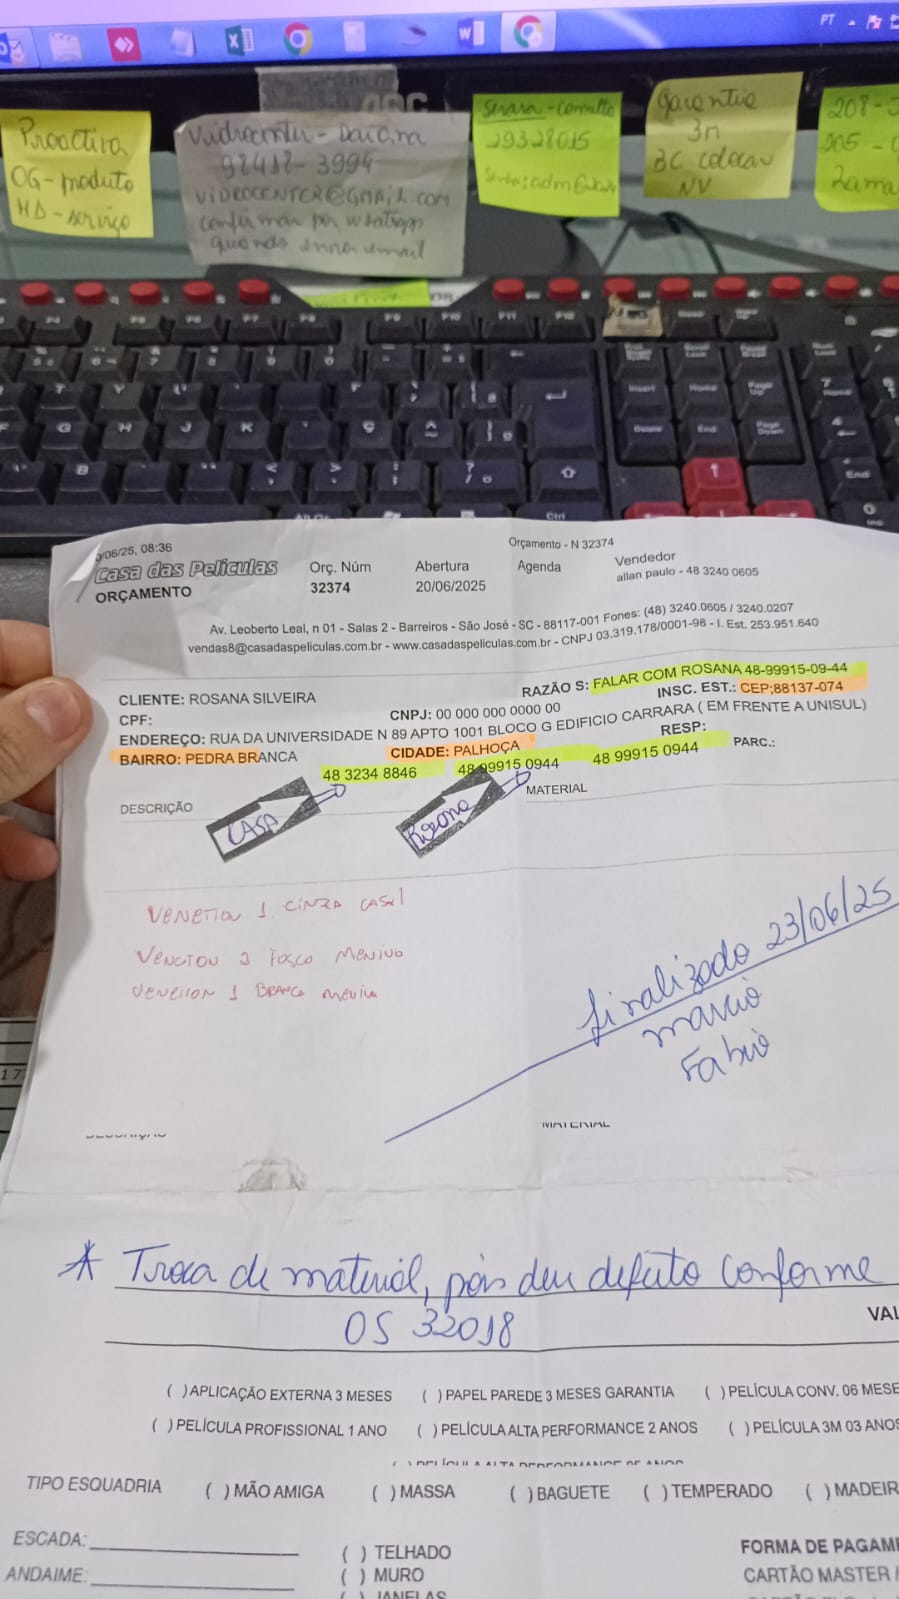 PT
Proactiva
OG-produto
HD-serviço
Vidrocenter-Daiana
98418-3994
VIDEOCENTER@GMAIL.COM
confirmar por whatsapp
quando enviar email
AOC
Serasa-consulta
29328015
Garantia
3M
BC colocar
NV
208-
205-
F4
F5
F6
F7
F8
F9
F10
F11
F12
Insert
Home
Page Up
Delete
End
Page Down
G H J K Ç
B
End
Ctrl
/06/25, 08:36
Orçamento - N 32374
Casa das Películas
ORÇAMENTO
Orç. Núm
32374
Abertura
20/06/2025
Agenda
Vendedor
allan paulo - 48 3240 0605
Av. Leoberto Leal, n 01 - Salas 2 - Barreiros - São José - SC - 88117-001 Fones: (48) 3240.0605 / 3240.0207
vendas8@casadaspeliculas.com.br - www.casadaspeliculas.com.br - CNPJ 03.319.178/0001-98 - I. Est. 253.951.640
CLIENTE: ROSANA SILVEIRA
RAZÃO S: FALAR COM ROSANA 48-99915-09-44
CPF:
CNPJ: 00 000 000 0000 00
INSC. EST.: CEP;88137-074
ENDEREÇO: RUA DA UNIVERSIDADE N 89 APTO 1001 BLOCO G EDIFICIO CARRARA ( EM FRENTE A UNISUL)
BAIRRO: PEDRA BRANCA
CIDADE: PALHOÇA
RESP:
48 3234 8846
48 99915 0944
48 99915 0944
PARC.:
DESCRIÇÃO
MATERIAL
CASA
Rosana
VENETION 1 CINZA CASAL
VENETION 2 FOSCO MENINO
VENETION 1 BRANCO MENINA
finalizado 23/06/25
marcio
Fabio
DESCRIÇÃO
MATERIAL
* Troca de material, pois deu defeito conforme
OS 32018
VAL
( ) APLICAÇÃO EXTERNA 3 MESES ( ) PAPEL PAREDE 3 MESES GARANTIA ( ) PELÍCULA CONV. 06 MESE
( ) PELÍCULA PROFISSIONAL 1 ANO ( ) PELÍCULA ALTA PERFORMANCE 2 ANOS ( ) PELÍCULA 3M 03 ANOS
( ) PELÍCULA ALTA PERFORMANCE 05 ANOS
TIPO ESQUADRIA ( ) MÃO AMIGA ( ) MASSA ( ) BAGUETE ( ) TEMPERADO ( ) MADEIR
ESCADA:
( ) TELHADO
FORMA DE PAGAM
ANDAIME:
( ) MURO
CARTÃO MASTER /
( ) JANELAS